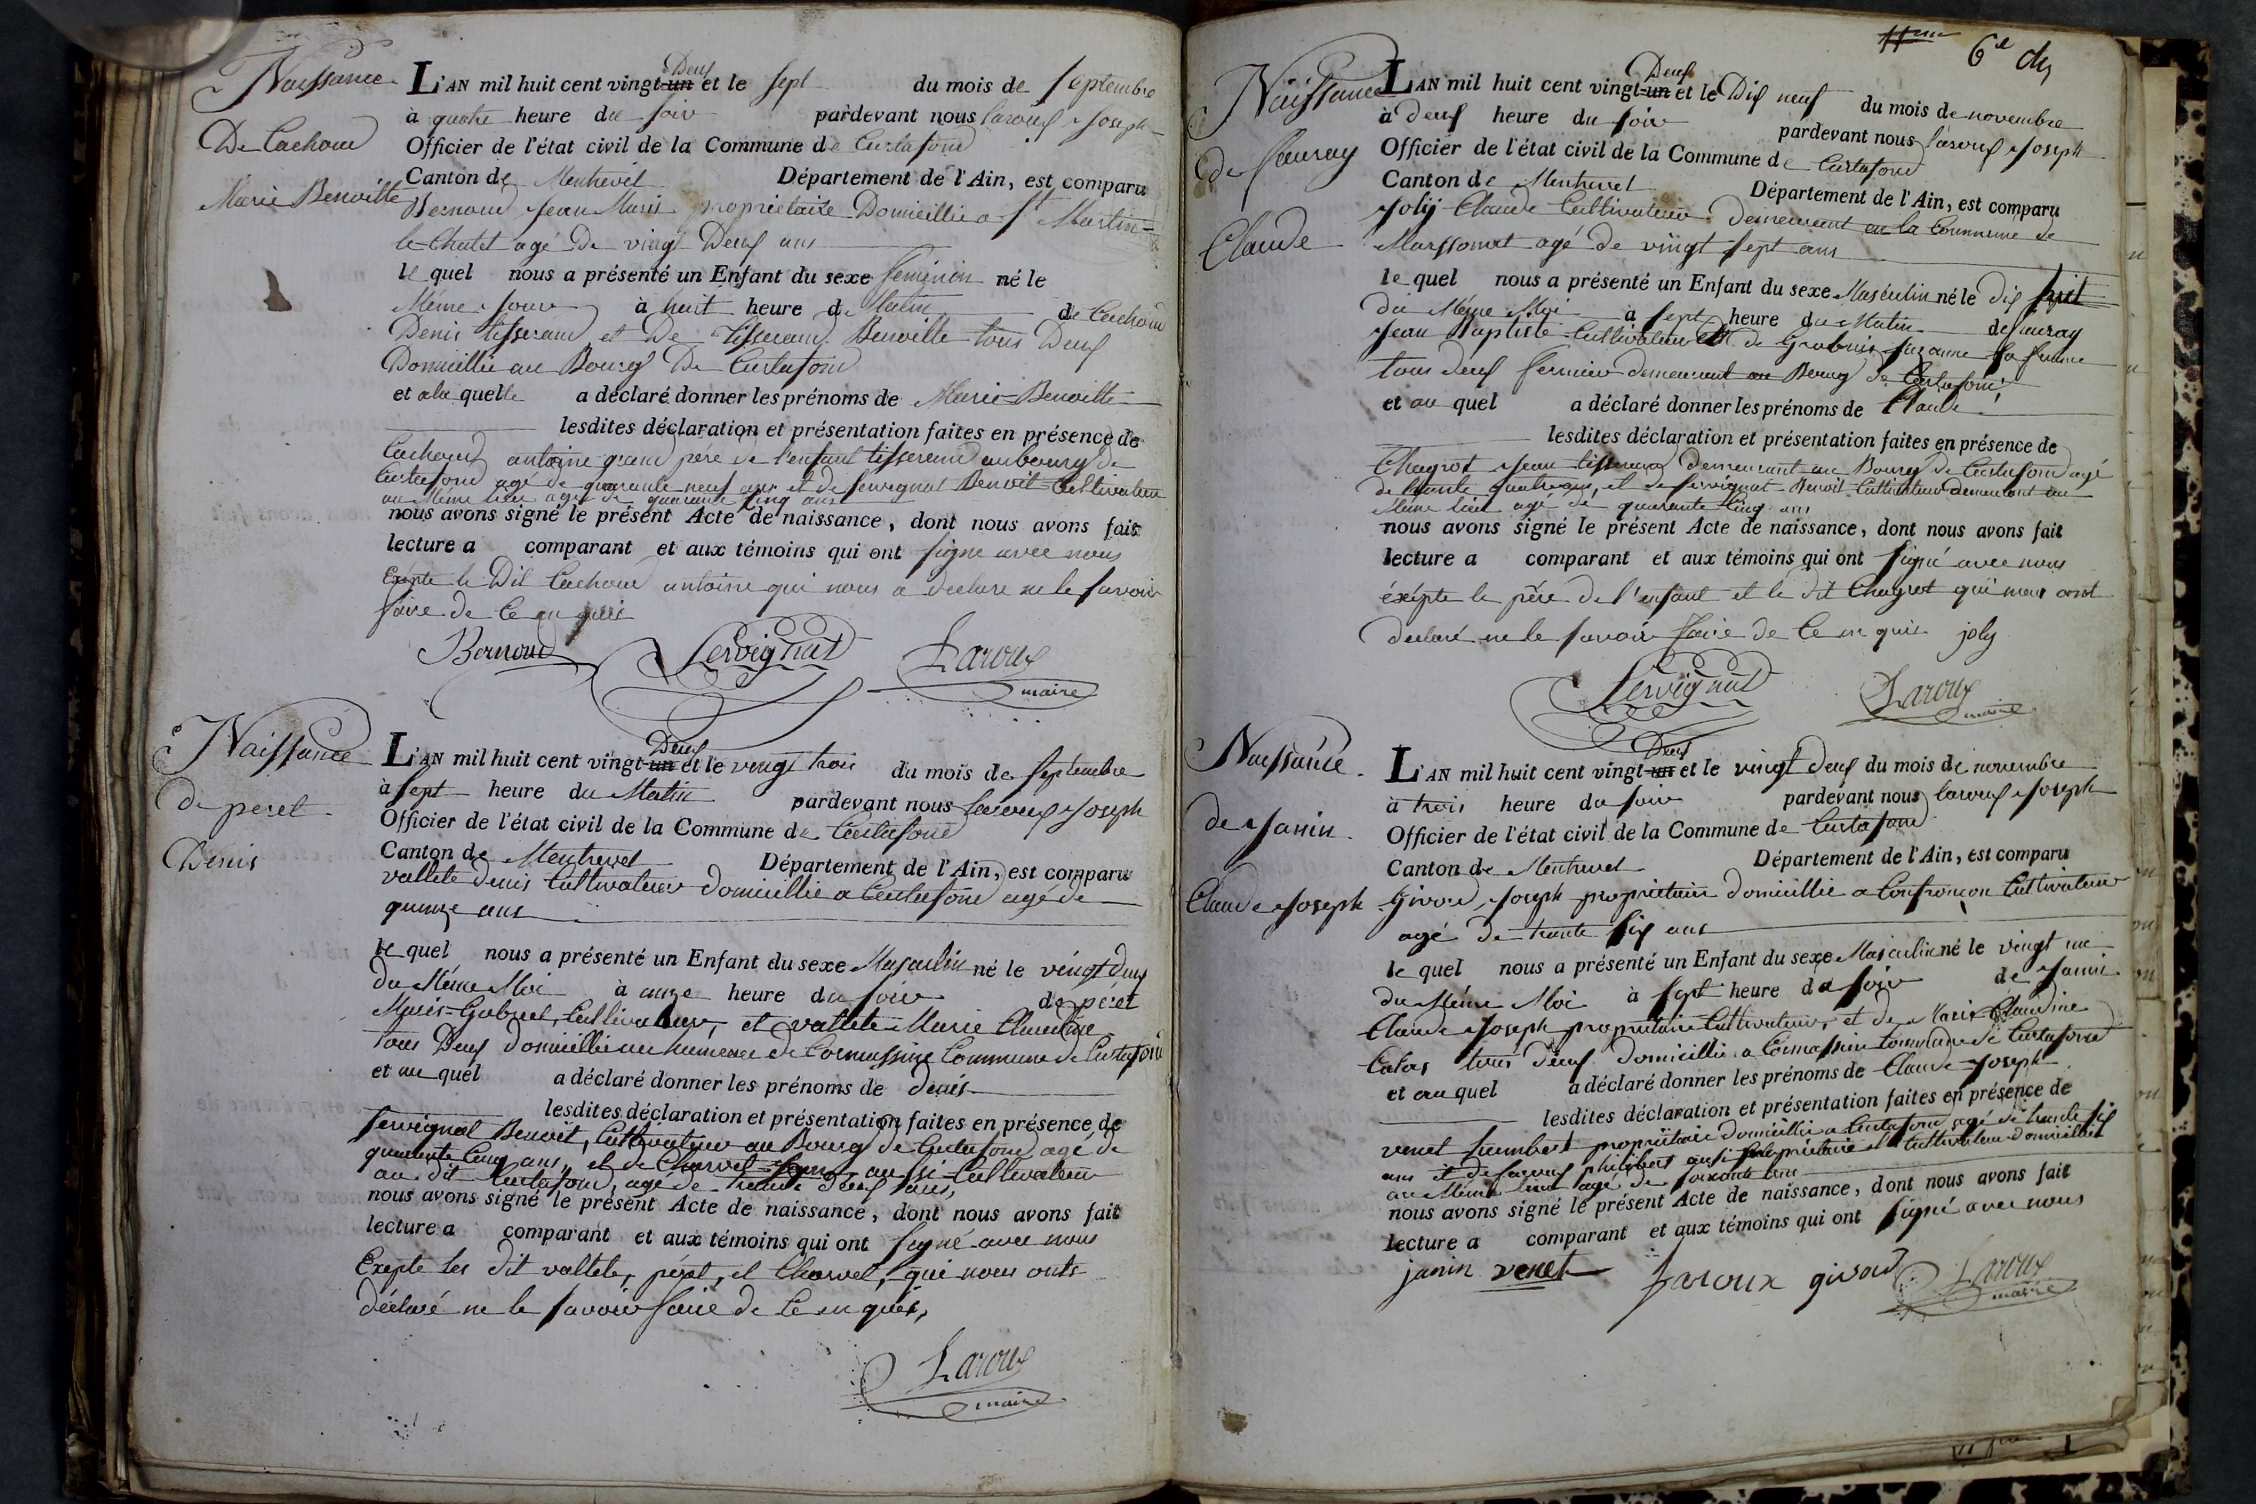 Naissance
De Cachoud
Marie Benoitte
L'AN mil huit cent vingt-un Deux et le sept du mois de septembre
à quatre heure du soir pardevant nous Laroux Joseph
Officier de l'état civil de la Commune de Curtafond
Canton de Montrevel Département de l'Ain, est comparu
Bernoud Jean Marie propriétaire Domicillié a St Martin
le Chatel agé De vingt Deux ans
le quel nous a présenté un Enfant du sexe feminin né le
Même Jour à huit heure du Matin de Cachoud
Denis tisserand et De tisserand Benoitte tous Deux
Domicillié au Bourg De Curtafond
et a la quelle a déclaré donner les prénoms de Marie Benoitte
lesdites déclaration et présentation faites en présence de
Cachoud antoine grand père de l'enfant tisserand au bourg de
Curtafond agé de quarante neuf ans et de servignat Benoit Cultivateur
au Même lieu agé de quarante cinq ans
nous avons signé le présent Acte de naissance, dont nous avons fait
lecture a comparant et aux témoins qui ont signé avec nous
Exepte le Dit Cachoud antoine qui nous a declare ne le savoir
faire de Ce en quis
Bernoud Servignat Laroux
maire
Naissance
de peret
Denis
L'AN mil huit cent vingt-un Deux et le vingt trois du mois de septembre
à sept heure du Matin pardevant nous Laroux Joseph
Officier de l'état civil de la Commune de Curtafond
Canton de Montrevel Département de l'Ain, est comparu
vallete denis Cultivateur domicillié a Curtafond agé de
quinze ans
le quel nous a présenté un Enfant du sexe Masculin né le vingt deux
du Même Moi à onze heure du soir de péret
Marie-Gabriel, Cultivateur, et vallete Marie Claudine
tous Deux domicillié au hameau de Cormassine Commune de Curtafond
et au quel a déclaré donner les prénoms de denis
lesdites déclaration et présentation faites en présence de
servignat Benoit, Cultivateur au Bourg de Curtafond agé de
quarante Cinq ans, et de Charvet aussi Cultivateur
au dit Curtafond, agé de trente deux ans,
nous avons signé le présent Acte de naissance, dont nous avons fait
lecture a comparant et aux témoins qui ont signé avec nous
Exepte les dit vallete, péret, et Charvet, qui nous onts
déclaré ne le savoir faire de Ce en quis,
Laroux
maire
11eme 6e
Naissance
de
Claude
L'AN mil huit cent vingt-un Deux et le Dix neuf du mois de novembre
à Deux heure du soir pardevant nous Laroux Joseph
Officier de l'état civil de la Commune de Curtafond
Canton de Montrevel Département de l'Ain, est comparu
Joly Claude Cultivateur demeurant en la Commune de
Marssonat agé de vingt sept ans
le quel nous a présenté un Enfant du sexe Masculin né le dix sept
du Même Moi à sept heure du Matin de
Jean Baptiste Cultivateur et de suzanne sa femme
tous deux fermier demeurant au Bourg de Curtafond
et au quel a déclaré donner les prénoms de Claude
lesdites déclaration et présentation faites en présence de
Chagrot Jean tisserand demeurant au Bourg de Curtafond agé
de trente quatre ans, et de servignat Benoit Cultivateur demeurant au
Même lieu agé de quarante Cinq ans
nous avons signé le présent Acte de naissance, dont nous avons fait
lecture a comparant et aux témoins qui ont signé avec nous
éxépte le père de l'enfant et le dit Chagrot qui nous ont
declaré ne le savoir faire de Ce en quis joly
Servignat Laroux
maire
Naissance
de Janin
Claude Joseph
L'AN mil huit cent vingt-un Deux et le vingt deux du mois de novembre
à trois heure du soir pardevant nous Laroux Joseph
Officier de l'état civil de la Commune de Curtafond
Canton de Montrevel Département de l'Ain, est comparu
Givord Joseph propriétaire domicillié a Confrançon Cultivateur
agé de trente six ans
le quel nous a présenté un Enfant du sexe Masculin né le vingt un
du Même Moi à sept heure du soir de Janin
Claude Joseph propriétaire Cultivateur, et de Marie Claudine
tous deux domicillié a Cormassine Commune de Curtafond
et au quel a déclaré donner les prénoms de Claude Joseph
lesdites déclaration et présentation faites en présence de
venet humbert propriétaire domicillié a Curtafond agé de trente six
ans et de Laroux philibert aussi propriétaire et Cultivateur domicillié
au Même lieu agé de soixante ans
nous avons signé le présent Acte de naissance, dont nous avons fait
lecture a comparant et aux témoins qui ont signé avec nous
janin venet Laroux givord Laroux
maire